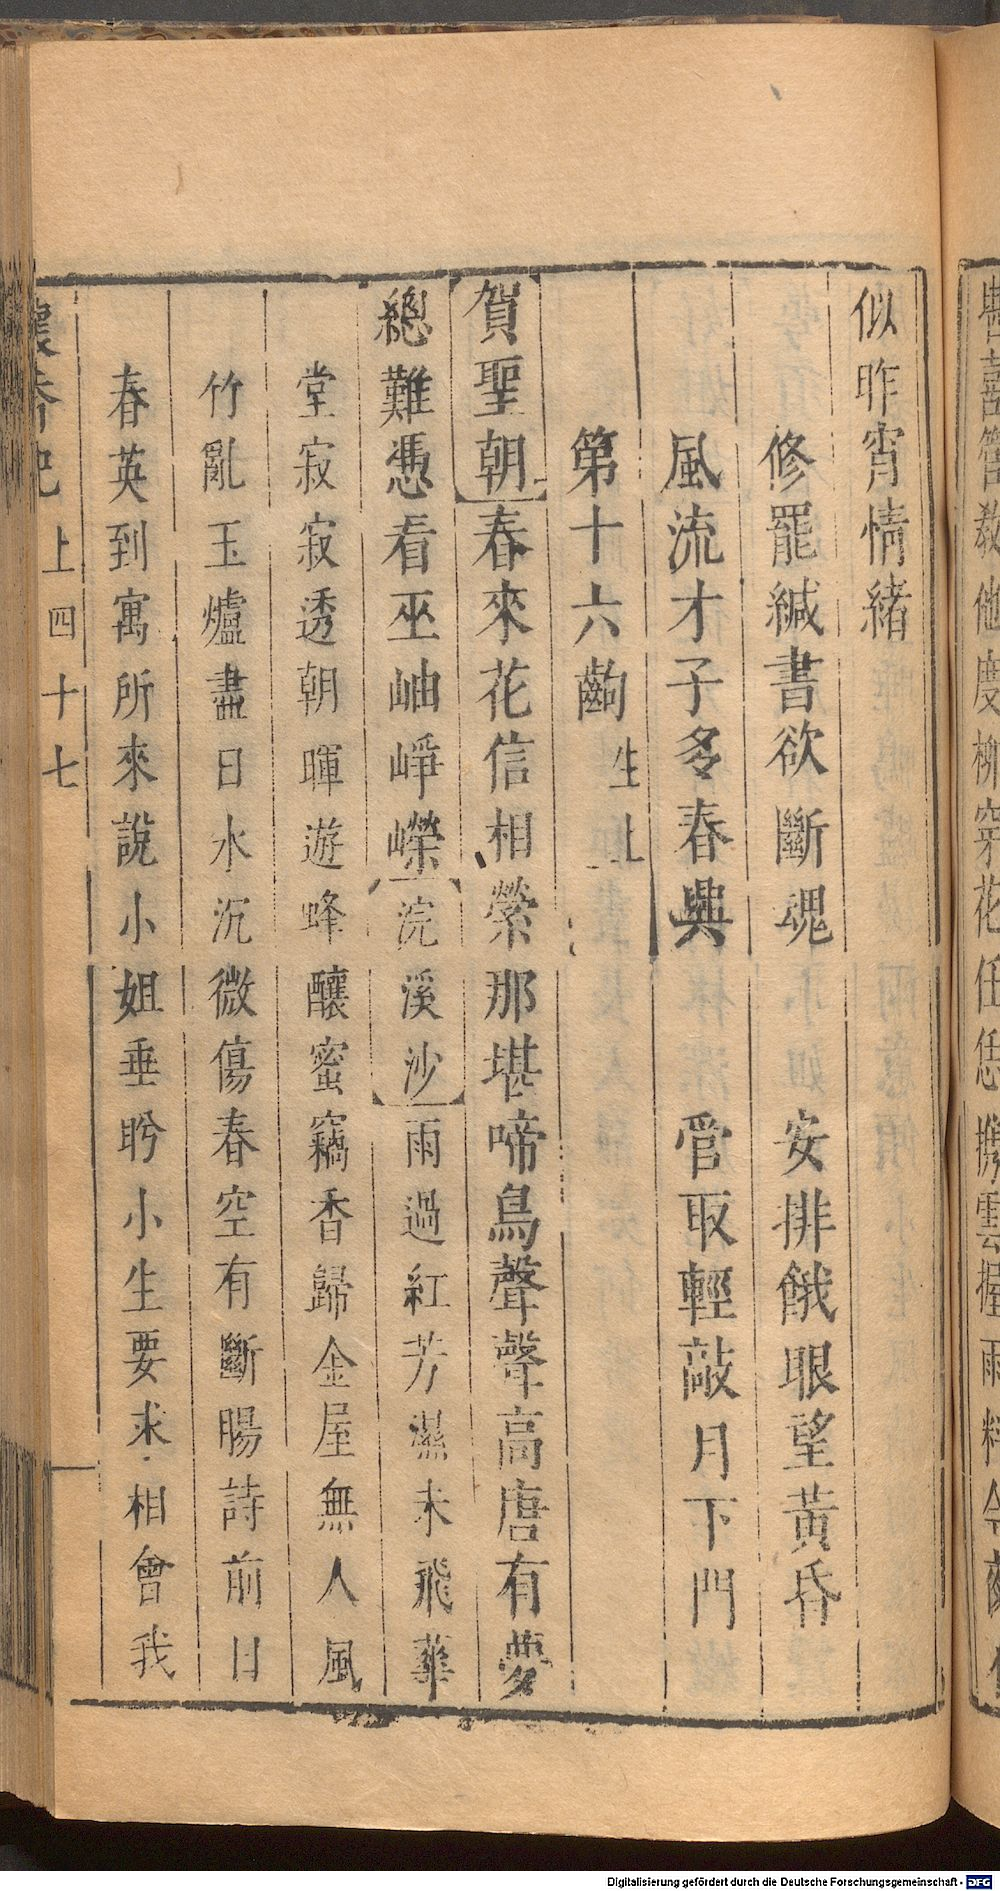 譽喜簪教他度柳穿花任恁携雲握雨料今夜
似昨宵情緒
修罷緘書欲斷魂　安排餓眼望黃昏
風流才子多春興　管取輕敲月下門
第十六齣 生上
賀聖朝 春來花信相縈那堪啼鳥聲聲高唐有夢
總難憑看巫岫崢嶸 浣溪沙 雨過紅芳濕未飛華
堂寂寂透朝暉遊蜂釀蜜竊香歸金屋無人風
竹亂玉爐盡日水沉微傷春空有斷腸詩前日
春英到寓所來說小姐垂盻小生要求相會我
懷香記 上 四十七
Digitalisierung gefördert durch die Deutsche Forschungsgemeinschaft - DFG